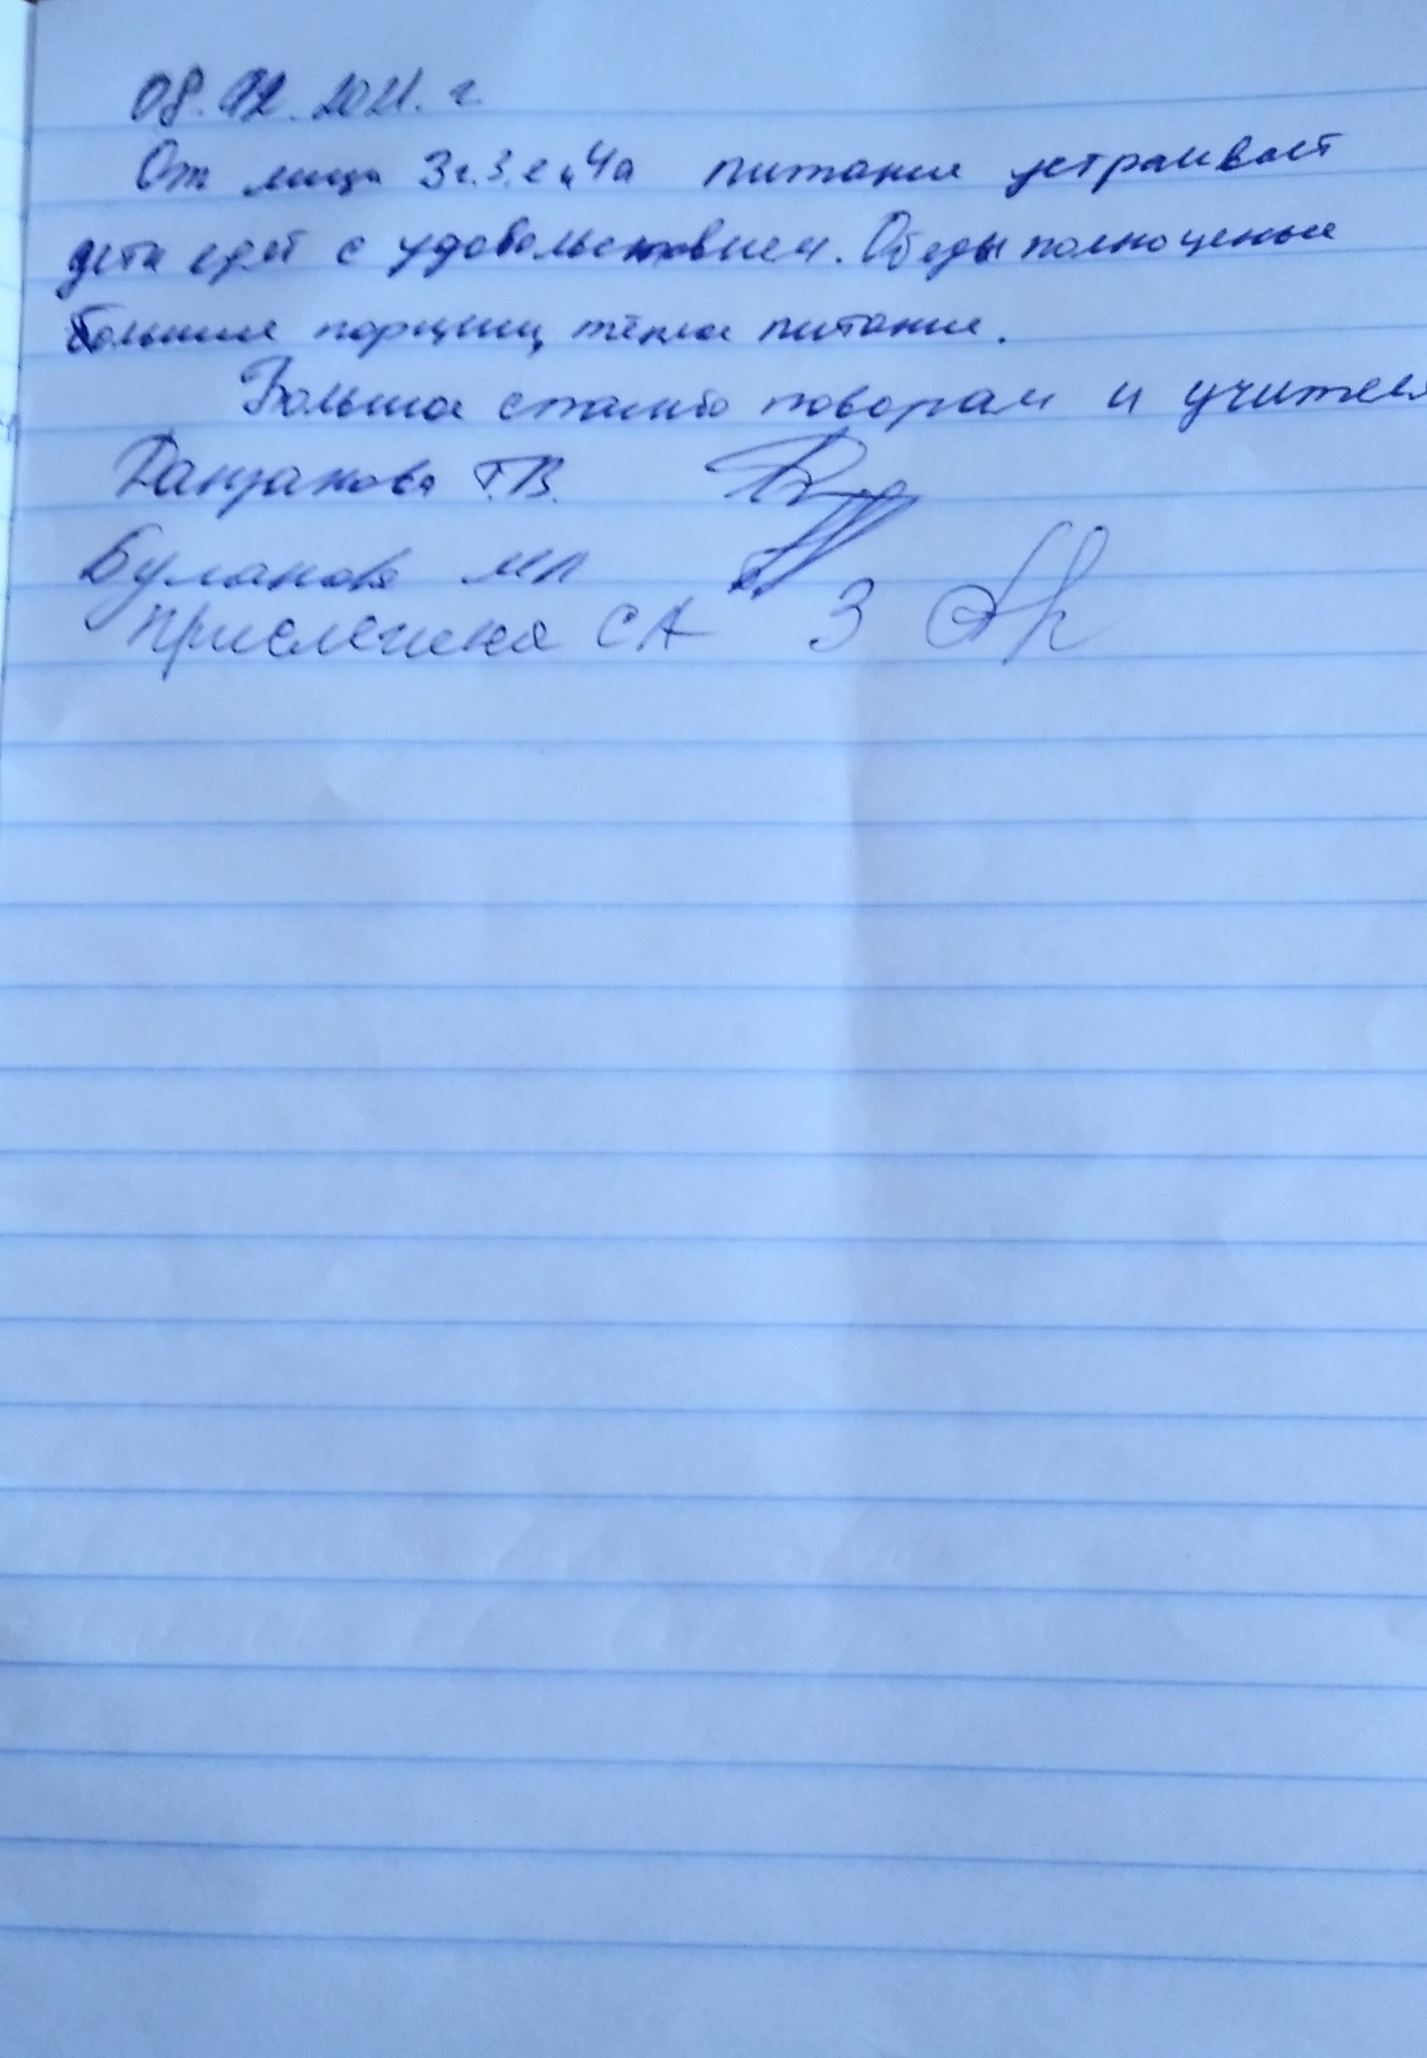 08.12.2021. г.
От лица 3г. 3.е и 4а питание устраивает
дети едят с удовольствием. Обеды полноценые
большие порции, тёплое питание.
Большое спасибо поварам и учител
Т.В.
Буланова МЛ
СА